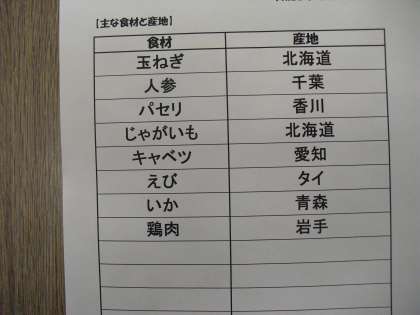 【主な食材と産地】
食材 産地
玉ねぎ 北海道
人参 千葉
パセリ 香川
じゃがいも 北海道
キャベツ 愛知
えび タイ
いか 青森
鶏肉 岩手